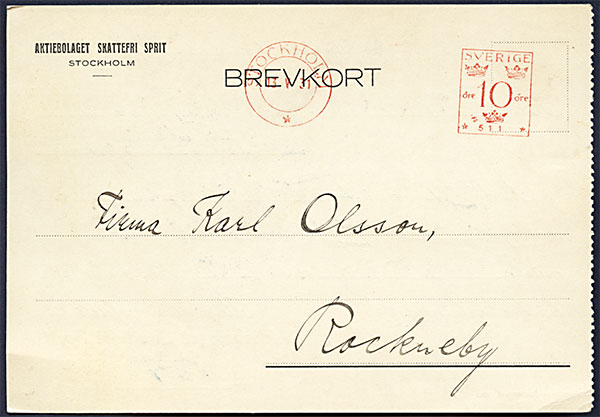 AKTIEBOLAGET SKATTEFRI SPRIT
STOCKHOLM
BREVKORT
STOCKHOLM
SVERIGE
öre 10 öre
511
Firma Karl Olsson,
Rockneby